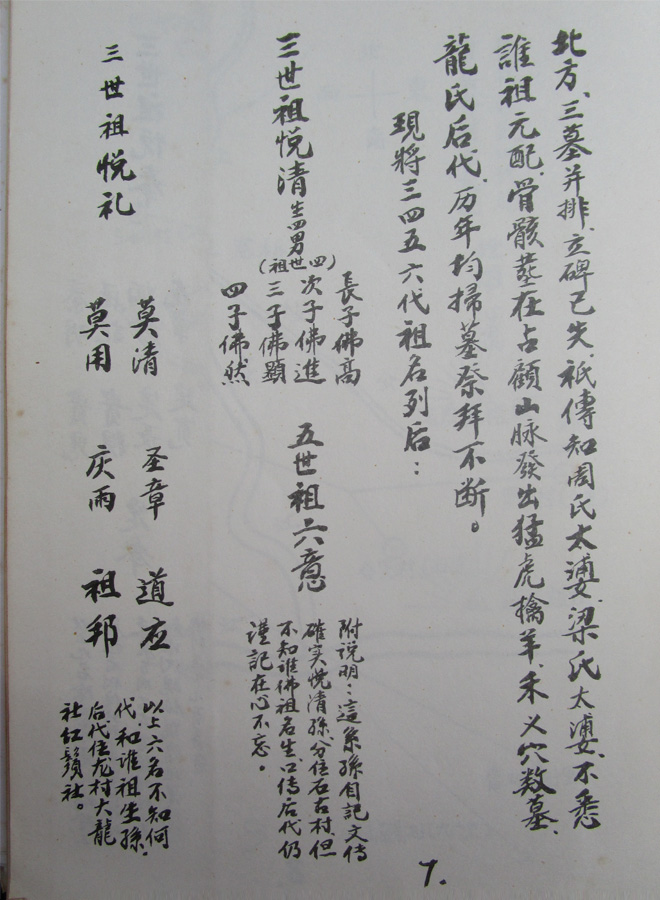 北方、三墓并排、立碑已失、祇傳知周氏太婆、梁氏太婆、不悉
誰祖元配、骨骸塟在占顧山脉發出猛虎擒羊、禾义穴数墓、
龍氏后代、历年均掃墓祭拜不断。
現將三四五六代祖名列后：
三世祖悦清生四男
（四世祖）
長子佛高
次子佛進
三子佛顯
四子佛然
五世祖六意
附説明：這系孫自記文传
確实悦清孫、分住石古村、但
不知誰佛祖名生、口传后代仍
谨記在心不忘。
三世祖悦礼
莫清 圣章 道应
莫用 庆雨 祖邦
以上六名不知何
代、和谁祖生孫、
后代住龙村大龍
社红鬚社。
7.